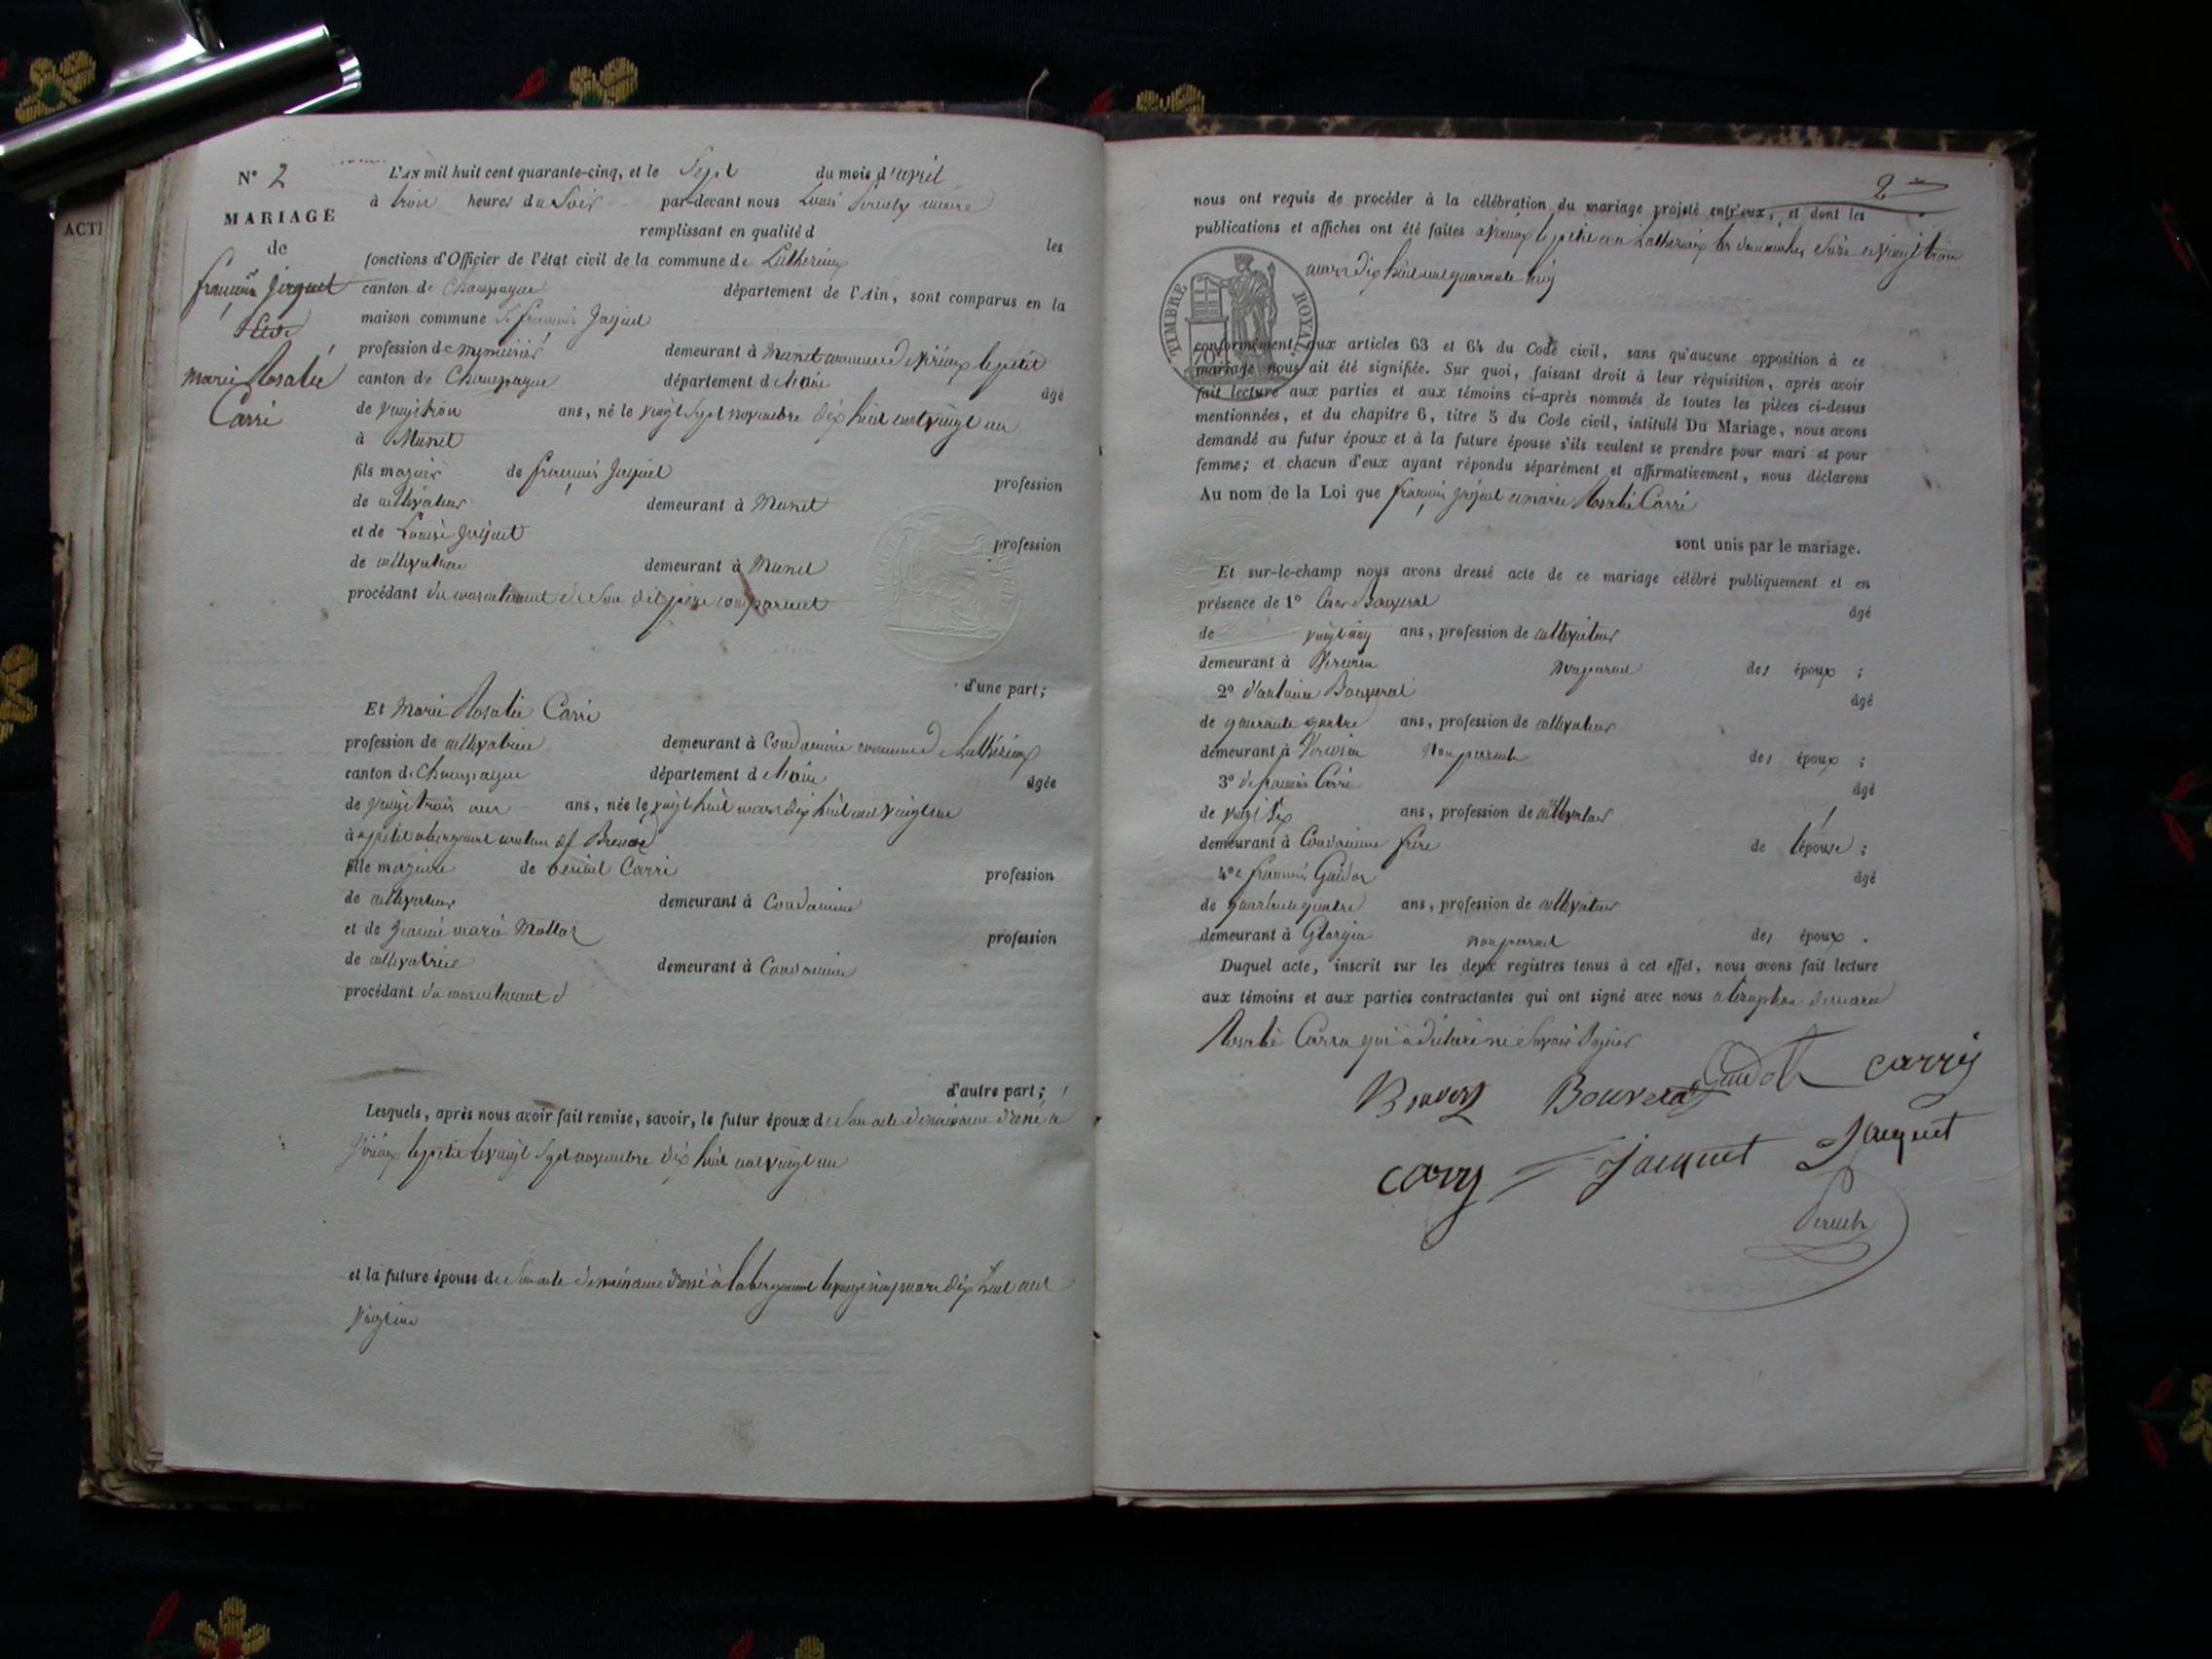 ACTI
N° 2
MARIAGE
de
françois Jacquet
et de
Marie Rosalie
Carri
L'AN mil huit cent quarante-cinq, et le Sept du mois d'avril
à trois heures du Soir par-devant nous Louis maire
remplissant en qualité d les
fonctions d'Officier de l'état civil de la commune de
canton de Champagne département de l'Ain, sont comparus en la
maison commune françois Jaquet
profession de demeurant à Munet commune de Virieux le petit
canton de Champagne département de l'ain âgé
de vingt trois ans, né le vingt Sept novembre dix huit cent vingt un
à Munet
fils majeur de françois Jaquet profession
de cultivateur demeurant à Munet
et de Louise Jaquet profession
de cultivatrice demeurant à Munet
procédant du consentement de son dit père comparant
d'une part;
Et Marie Rosalie Carri
profession de cultivatrice demeurant à Condamine commune de
canton de Champagne département de l'ain âgée
de vingt trois ans ans, née le vingt huit mars dix huit cent vingt un
à petit abergement canton de
fille majeure de Carri profession
de cultivateur demeurant à Condamine
et de marie profession
de cultivatrice demeurant à Condamine
procédant du consentement d
d'autre part;
Lesquels, après nous avoir fait remise, savoir, le futur époux de Son acte de naissance
Virieux le petit le vingt Sept novembre dix huit cent vingt un
et la future épouse de Son acte de naissance mars dix huit cent
vingt un
2
nous ont requis de procéder à la célébration du mariage projeté entr'eux, et dont les
publications et affiches ont été faites à Virieux le petit et à les dimanches Seize et vingt trois
mars dix huit cent quarante cinq
TIMBRE ROYAL
70
conformément aux articles 63 et 64 du Code civil, sans qu'aucune opposition à ce
mariage nous ait été signifiée. Sur quoi, faisant droit à leur réquisition, après avoir
fait lecture aux parties et aux témoins ci-après nommés de toutes les pièces ci-dessus
mentionnées, et du chapitre 6, titre 5 du Code civil, intitulé Du Mariage, nous avons
demandé au futur époux et à la future épouse s'ils veulent se prendre pour mari et pour
femme; et chacun d'eux ayant répondu séparément et affirmativement, nous déclarons
Au nom de la Loi que françois Jaquet et marie Rosalie Carri
sont unis par le mariage.
Et sur-le-champ nous avons dressé acte de ce mariage célébré publiquement et en
présence de 1° Bouverat âgé
de vingt cinq ans, profession de cultivateur
demeurant à Virieu non parent des époux ;
2° d'antoine Bouverat âgé
de quarante quatre ans, profession de cultivateur
demeurant à Virieu non parent des époux ;
3° de françois Carri âgé
de vingt Six ans, profession de cultivateur
demeurant à Condamine frère de l'épouse ;
4° françois Guidot âgé
de quarante quatre ans, profession de cultivateur
demeurant à non parent des époux .
Duquel acte, inscrit sur les deux registres tenus à cet effet, nous avons fait lecture
aux témoins et aux parties contractantes qui ont signé avec nous à l'exception de marie
Rosalie Carri qui a déclaré ne Savoir Signer
Bouvera Guidot carry
carry Jacquet Jacquet